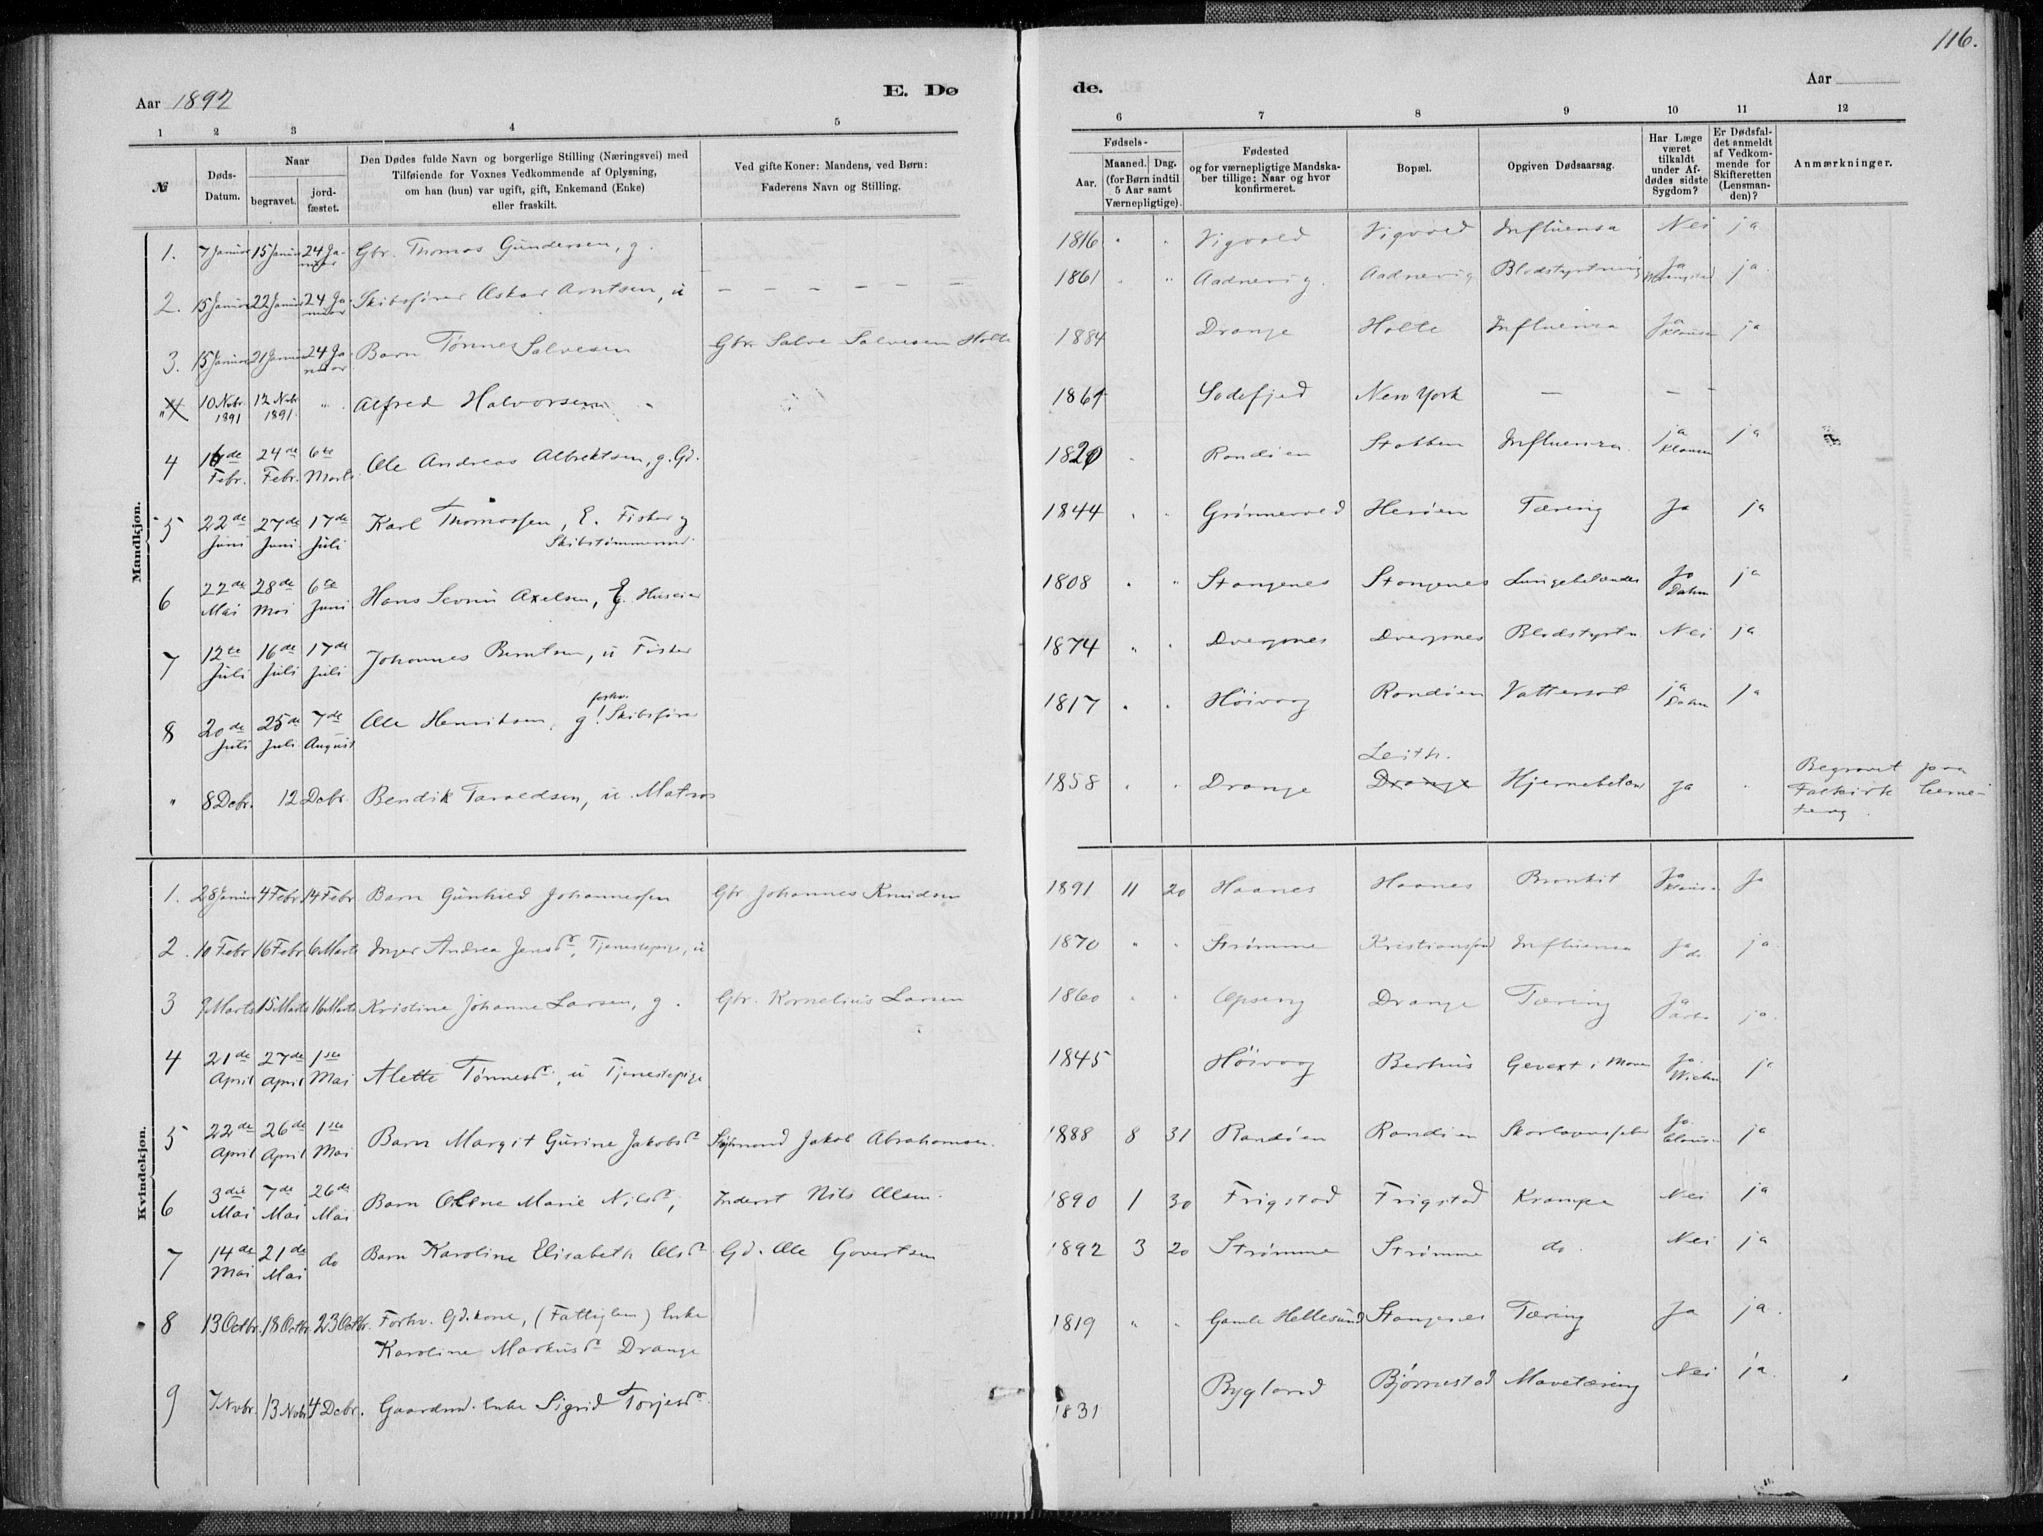 116.
Aar 1892
E. Dø
de.
Aar
1 2 3 4 5
6 7 8 9 10 11 12
№
Døds-Datum.
Naar
begravet.
jord-fæstet.
Den Dødes fulde Navn og borgerlige Stilling (Næringsvei) med
Tilføiende for Voxnes Vedkommende af Oplysning,
om han (hun) var ugift, gift, Enkemand (Enke)
eller fraskilt.
Ved gifte Koner: Mandens, ved Børn:
Faderens Navn og Stilling.
Fødsels-
Aar.
Maaned. Dag.
(for Børn indtil
5 Aar samt
Værnepligtige).
Fødested
og for værnepligtige Mandska-
ber tillige: Naar og hvor
konfirmeret.
Bopæl.
Opgiven Dødsaarsag.
Har Læge
været
tilkaldt
under Af-
dødes sidste
Sygdom?
Er Dødsfal-
det anmeldt
af Vedkom-
mende for
Skifteretten
(Lensman-
den)?
Anmærkninger.
Mandkjøn.
1. 7 Januar 15 Januar 24 Januar Gbr. Thomas Gundersen, g. 1816 " " Vigvold Vigvold Influensa Nei ja
2. 15 Januar 22 Januar 24 Januar Skibsfører Oskar Arntsen, u – – – – – – 1861 " " Aadnevig. Aadnevig Blodstyrtning Ja ja.
3. 15 Januar 21 Januar 24 Januar Barn Tønnes Salvesen Gbr. Salve Salvesen Holte 1884 Drange Holte Influensa Ja Klausen ja
"4 10 Nvbr. 1891 12 Nvbr. 1891. " Alfred Halvorsen 1861 Sodefjed New York – –
4 16de Febr. 24de Febr. 6te Marts Ole Andreas Albrektsen, g. Gd. 1820 " Randøen Stokken Influensa. ja Klausen ja
5 22de Juni 27de Juni 17de Juli Karl Thomassen, E. Fisker g Skibstømmermd. 1844 " " Grønnevold Herøen Tæring Ja ja
6 22de Mai 28de Mai 6te Juni Hans Severin Axelsen, E. Huseier 1808 " " Stangenes Stangenes Lungebetændels Ja Dahm ja
7 12te Juli 16de Juli 17de Juli Johannes Berntsen, u Fisker 1874 " " Dvergsnes Dvergsnes Blodstyrtn Nei ja
8 20de Juli 25de Juli 7de August Ole Henriksen, g! forhv. Skibsfører 1817 " " Høivaag Randøen Vattersot ja Dahm ja
" 8 Decbr. 12 Decbr. Bendik Taraldsen, u. Matros 1858 " " Drange Leith. Drange Hjernebetæn ja " Begravet paa Falkirk Ceme-
tery.
Kvindekjøn.
1. 28 Januar 4 Febr. 14 Febr. Barn Gunhild Johannessen Gbr Johannes Knudsen 1891 11 20 Haanes Haanes Bronkit Ja Klausen Ja
2. 10 Febr. 16 Febr. 6 Marts Inger Andrea Jensdr, Tjenestepige, u 1870 " " Strømme Kristianssand Influensa Ja do. ja.
3 9 Marts 15 Marts 16 Marts Kristine Johanne Larsen, g. Gbr. Kornelius Larsen 1860 " " Opseng Drange Tæring Ja ja.
4 21de April 27de April 1ste Mai Alette Tønnesdr, u Tjenestepige 1845 Høivaag Berhus Gevext i Maven Ja. ja
5 22de April 26de April 1ste Mai Barn Margit Gurine Jakobsdr Sømand Jakob Abrahamsen. 1888 8 31 Randøen Randøen Skarlagensfeber Ja. Clausen ja
6 3die Mai 7de Mai 26de Mai Barn Oline Marie Nilsdr, Inderst Nils Olsen. 1890 1 30 Frigstad Frigstad Krampe Nei ja
7 14de Mai 21de Mai do Barn Karoline Elisabeth Olsdr. Gd. Ole Govertsen 1892 3 20 Strømme Strømme do. Nei ja
8 13 Octbr. 18 Octbr. 23 Octbr. Forhv. Gd.kone, (Fattiglem) Enke
Karoline Markusdr Drange 1819 " " Gamle Hellesund Stangenes Tæring Ja ja.
9 7 Nvbr. 13 Nvbr. 4 Decbr. Gaardmd. Enke Sigrid Torjesdr. 1831 Bygland Bjørnestad Mavetæring Nei ja.